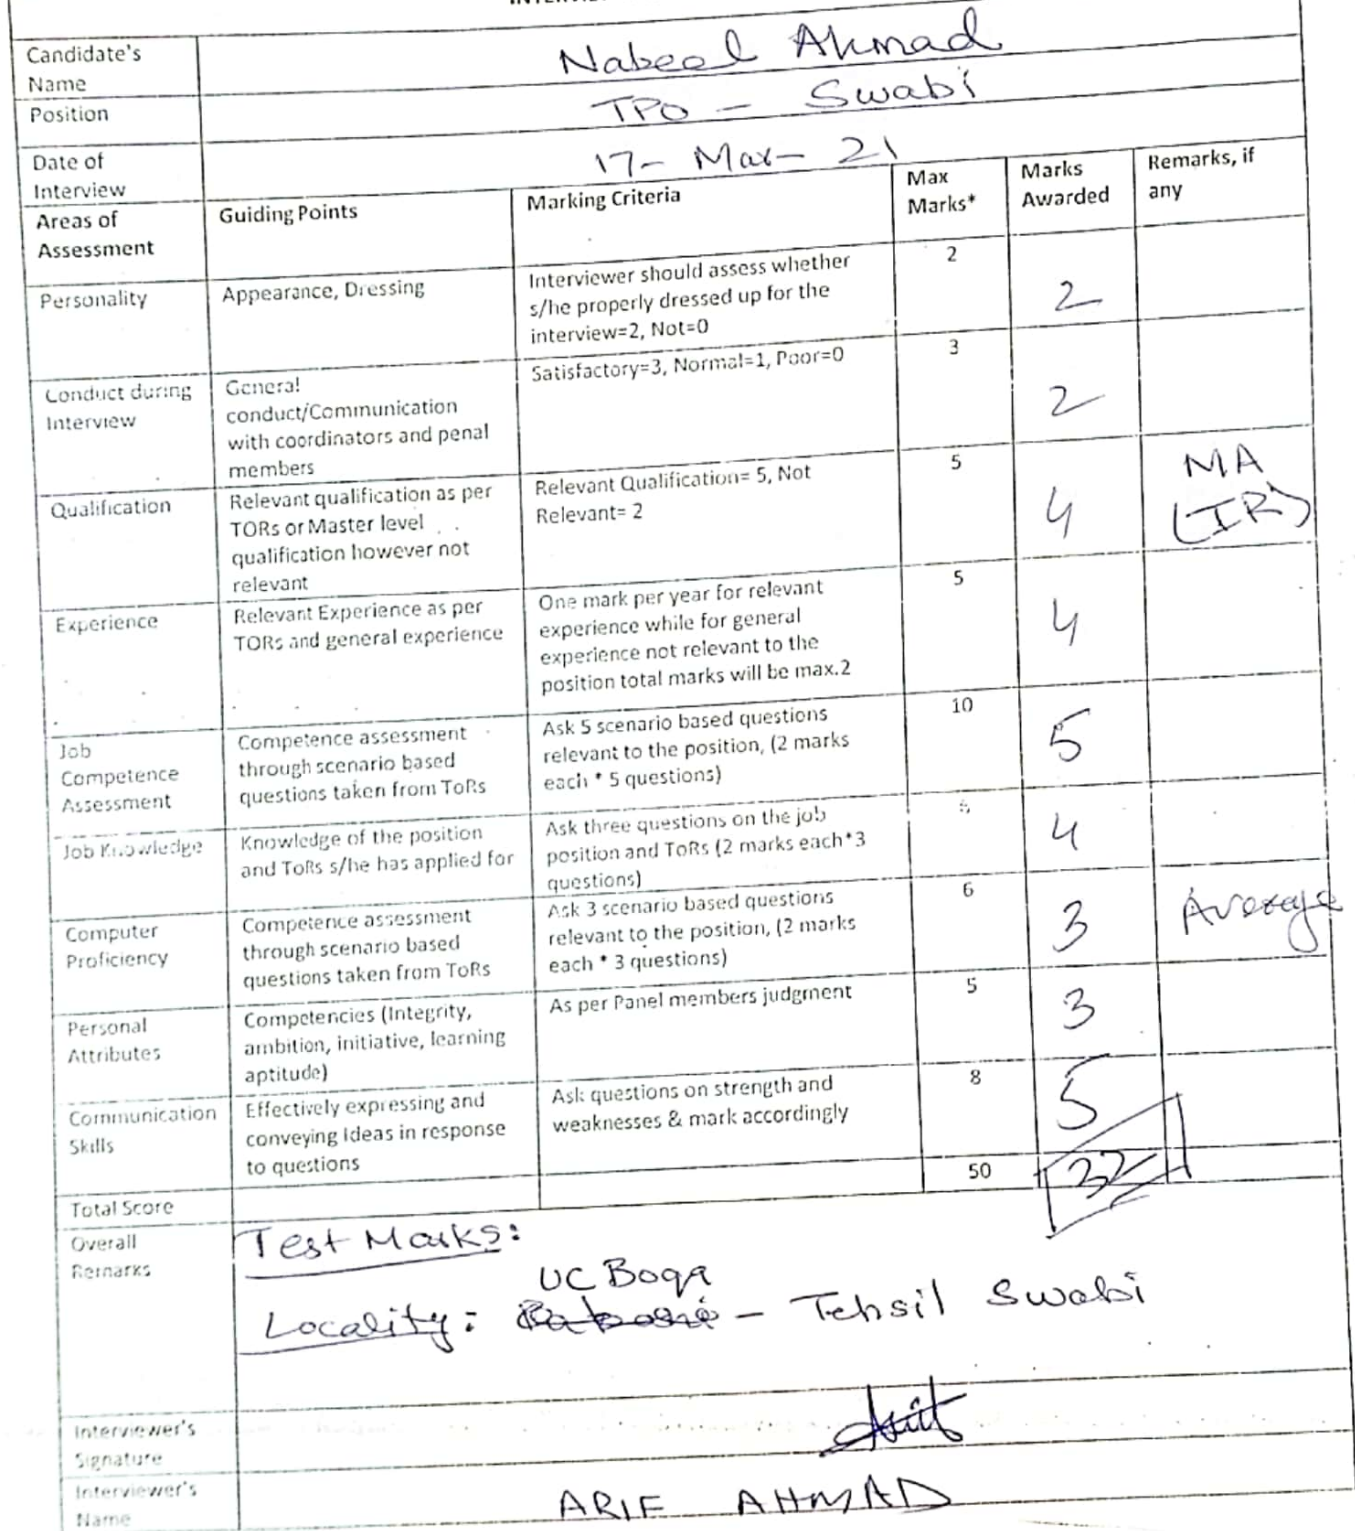 Candidate's
Name
Nabeel Ahmad
Position
TPO - Swabi
Date of
Interview
17- Mar- 21
Areas of
Assessment
Guiding Points
Marking Criteria
Max
Marks*
Marks
Awarded
Remarks, if
any
Personality
Appearance, Dressing
Interviewer should assess whether
s/he properly dressed up for the
interview=2, Not=0
2
2
Conduct during
Interview
General
conduct/Communication
with coordinators and penal
members
Satisfactory=3, Normal=1, Poor=0
3
2
Qualification
Relevant qualification as per
TORs or Master level
qualification however not
relevant
Relevant Qualification= 5, Not
Relevant= 2
5
4
MA
(IR)
Experience
Relevant Experience as per
TORs and general experience
One mark per year for relevant
experience while for general
experience not relevant to the
position total marks will be max.2
5
4
Job
Competence
Assessment
Competence assessment
through scenario based
questions taken from ToRs
Ask 5 scenario based questions
relevant to the position, (2 marks
each * 5 questions)
10
5
Job Knowledge
Knowledge of the position
and ToRs s/he has applied for
Ask three questions on the job
position and ToRs (2 marks each*3
questions)
4
Computer
Proficiency
Competence assessment
through scenario based
questions taken from ToRs
Ask 3 scenario based questions
relevant to the position, (2 marks
each * 3 questions)
6
3
Average
Personal
Attributes
Competencies (Integrity,
ambition, initiative, learning
aptitude)
As per Panel members judgment
5
3
Communication
Skills
Effectively expressing and
conveying Ideas in response
to questions
Ask questions on strength and
weaknesses & mark accordingly
8
5
Total Score
50
32
Overall
Remarks
Test Marks:
UC Boqa
Locality: - Tehsil Swabi
Interviewer's
Signature
Interviewer's
Name
ARIF AHMAD